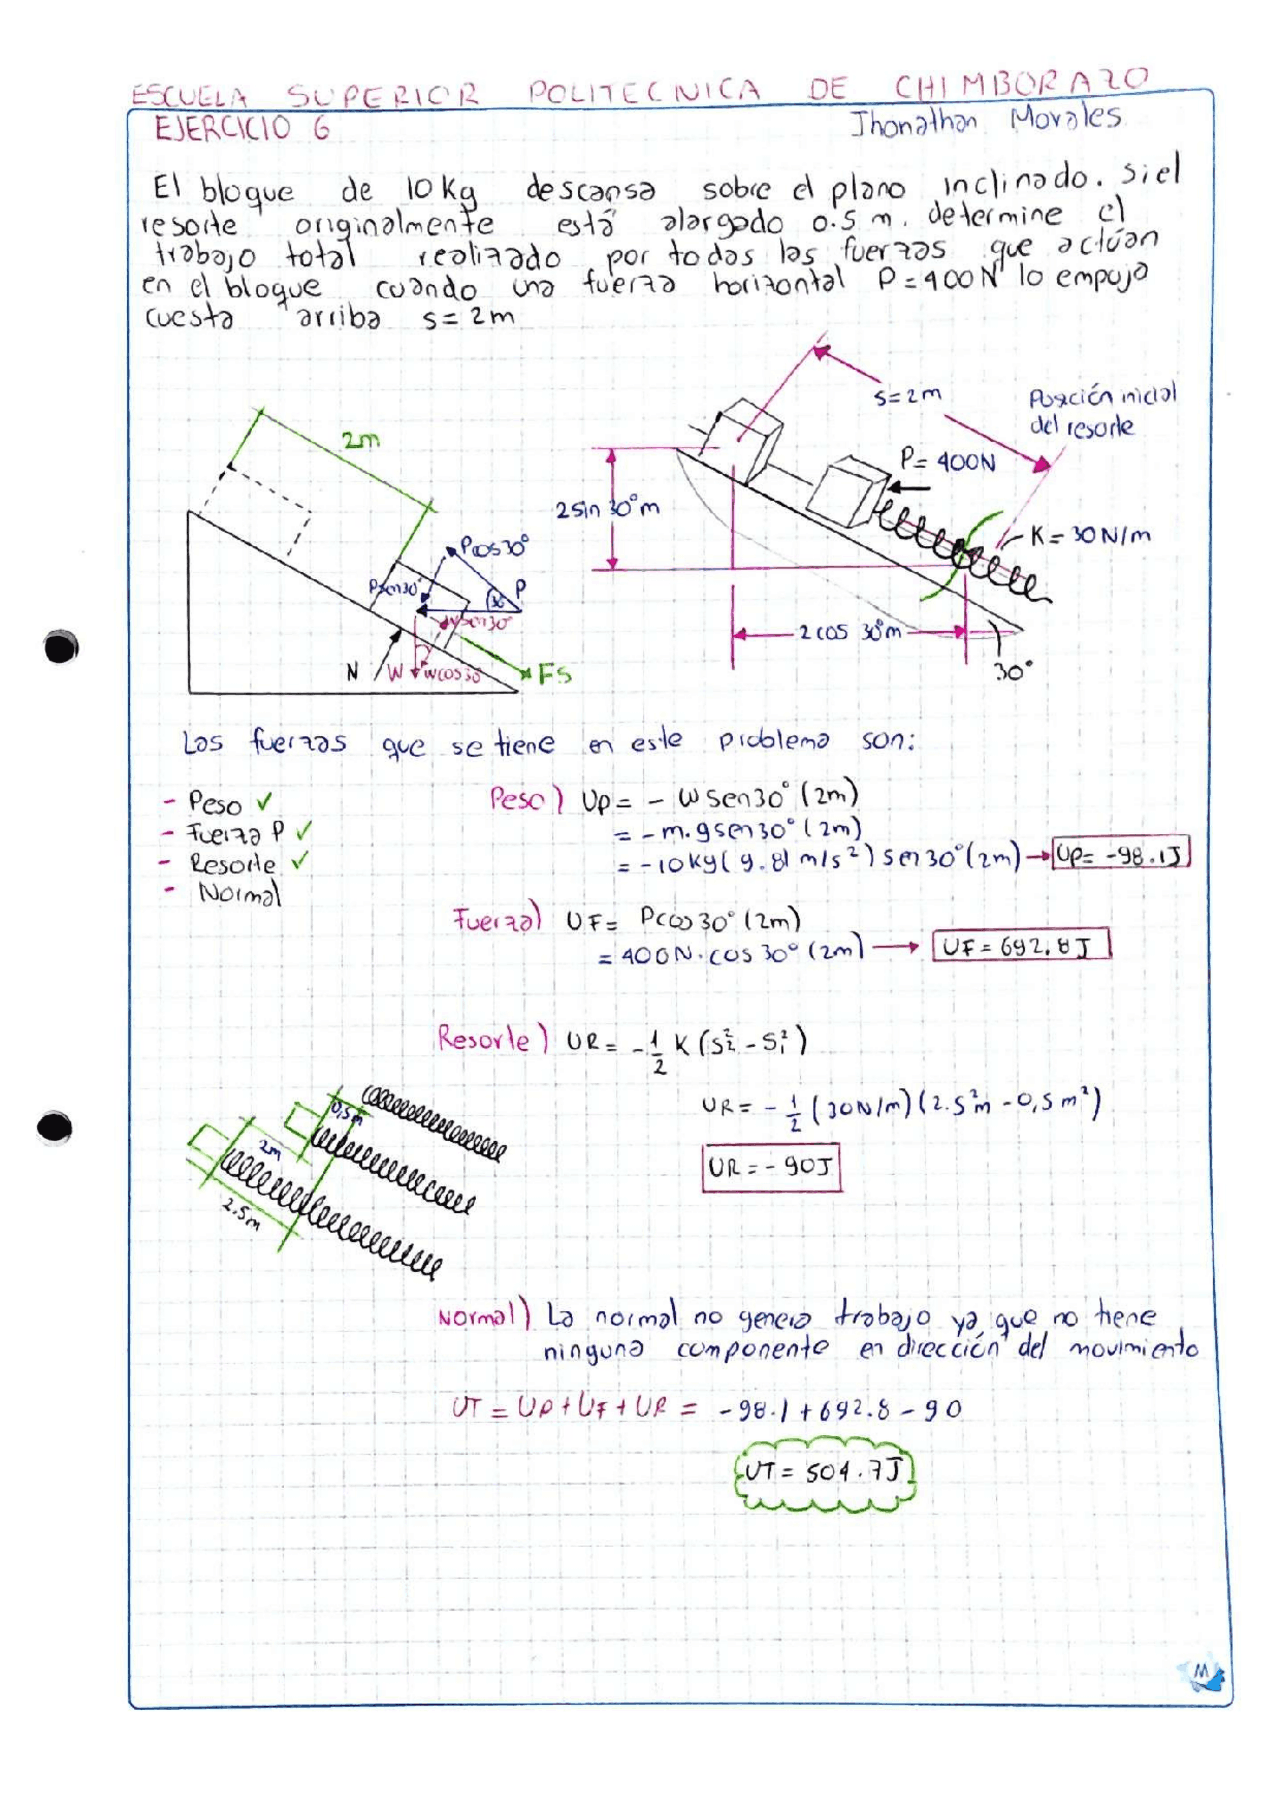 ESCUELA SUPERIOR POLITECNICA DE CHIMBORAZO
EJERCICIO 6
Jhonathan Morales
El bloque de 10 Kg descansa sobre el plano inclinado. si el
resorte originalmente está alargado 0.5 m. determine el
trabajo total realizado por todas las fuerzas que actúan
en el bloque cuando una fuerza horizontal P = 400 N lo empuja
cuesta arriba s = 2m
2m
Pcos30°
Psen30°
P
30°
wsen30°
N
W
wcos30
Fs
s = 2m
Posición inicial
del resorte
P = 400N
2 sin 30° m
K = 30 N/m
2 cos 30° m
30°
Las fuerzas que se tiene en este problema son:
- Peso ✓
- Fuerza P ✓
- Resorte ✓
- Normal
Peso) Up = - W Sen30° (2m)
= - m.g sen30° (2m)
= -10 kg (9.81 m/s²) sen 30° (2m) → Up = -98.1J
Fuerza) UF = Pcos 30° (2m)
= 400N. cos 30° (2m) → UF = 692.8J
Resorte) UR = - 1/2 K (S₂² - S₁²)
UR = - 1/2 (30N/m) (2.5²m - 0,5m²)
UR = - 90J
0,5m
2m
2.5m
Normal) La normal no genera trabajo ya que no tiene
ninguna componente en dirección del movimiento
UT = UP + UF + UR = -98.1 + 692.8 - 90
UT = 504.7J
M